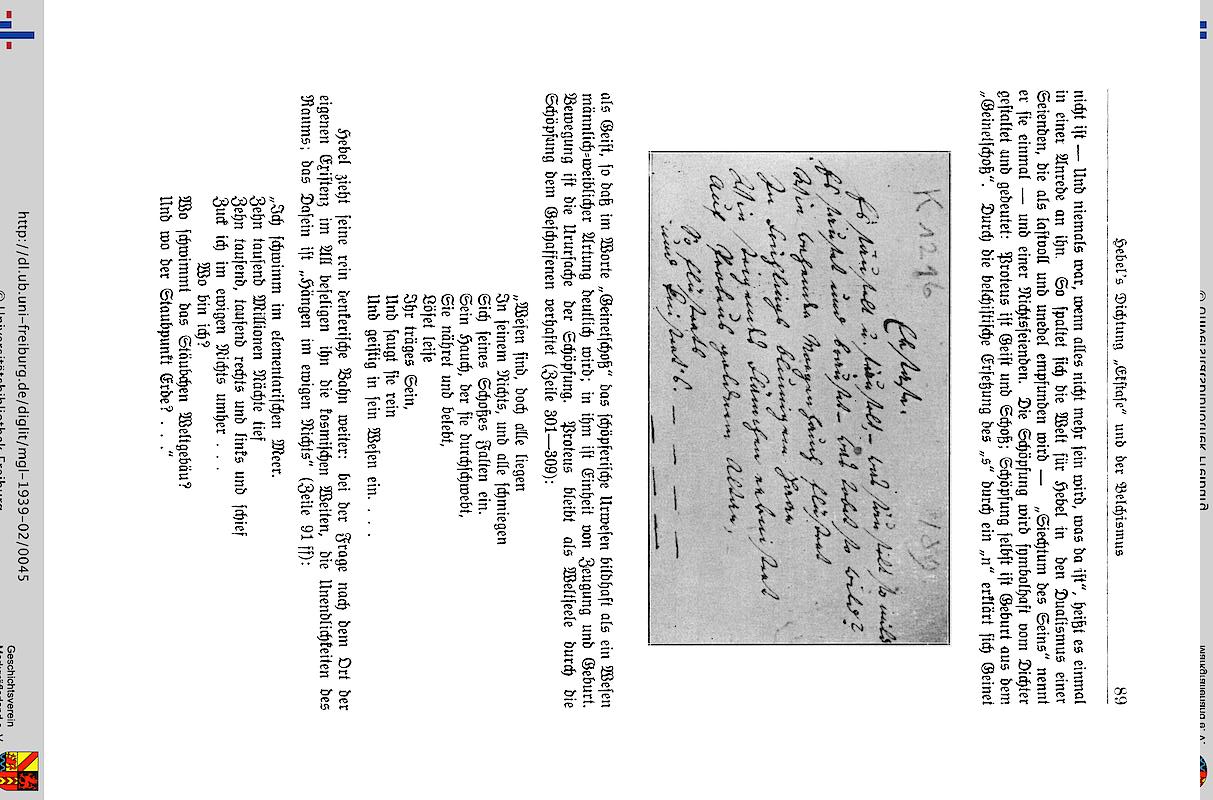 Hebel's Dichtung „Ekstase" und der Belchismus 89
nicht ist — Und niemals war, wenn alles nicht mehr sein wird, was da ist", heißt es einmal
in einer Anrede an ihn. So spaltet sich die Welt für Hebel in den Dualismus einer
Seienden, die als lastvoll und unedel empfunden wird — „Siechtum des Seins" nennt
er sie einmal — und einer Nichtseienden. Die Schöpfung wird symbolhaft vom Dichter
gestaltet und gedeutet: Proteus ist Geist und Schoß; Schöpfung selbst ist Geburt aus dem
„Geinetschoß". Durch die belchistische Ersetzung des „s" durch ein „n" erklärt sich Geinet
K 1296
189
Ekstase.
als Geist, so daß im Worte „Geinetschoß" das schöpferische Urwesen bildhaft als ein Wesen
männlich-weiblicher Artung deutlich wird; in ihm ist Einheit von Zeugung und Geburt.
Bewegung ist die Ursache der Schöpfung. Proteus bleibt als Weltseele durch die
Schöpfung dem Geschaffenen verhaftet (Zeile 301—309):
„Wesen sind, doch alle liegen
In seinem Nichts, und alle schmiegen
Sich seines Schoßes Falten ein.
Sein Hauch, der sie durchschwebt,
Sie nähret und belebt,
Löset leise
Ihr träges Sein,
Und saugt sie rein
Und geistig in sein Wesen ein. . . .
Hebel zieht seine rein denkerische Bahn weiter: bei der Frage nach dem Ort der
eigenen Existenz im All beseligen ihn die kosmischen Weiten, die Unendlichkeiten des
Raums; das Dasein ist „Hängen im ewigen Nichts" (Zeile 91 ff):
„Ich schwimm im elementarischen Meer.
Zehn tausend Millionen Nächte tief
Zehn tausend, tausend rechts und links und schief
Zuck ich im ewigen Nichts umher . . .
Wo bin ich?
Wo schwimmt das Stäubchen Weltgebäu?
Und wo der Staubpunkt Erde? . . ."
http://dl.ub.uni-freiburg.de/diglit/mgl-1939-02/0045
Geschichtsverein